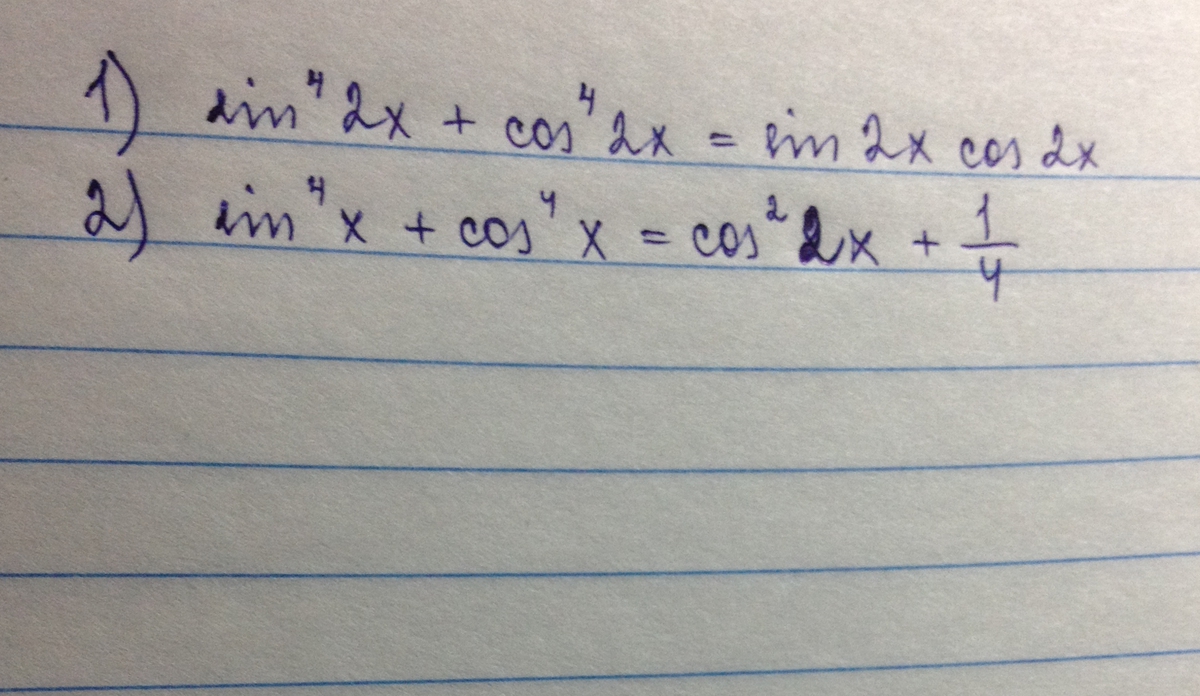 1) sin⁴ 2x + cos⁴ 2x = sin 2x cos 2x
2) sin⁴ x + cos⁴ x = cos² 2x + 1/4